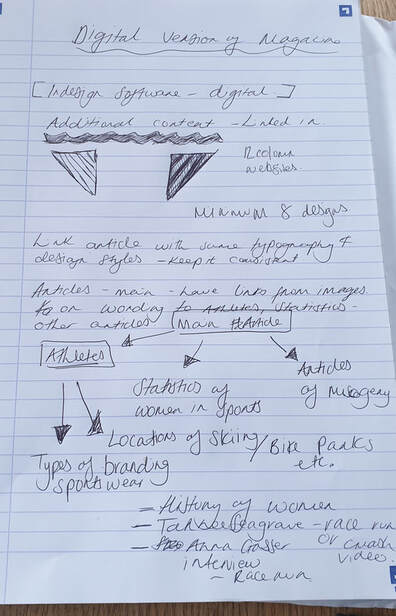 Digital Version of Magazine
[Indesign Software - digital]
Additional content - Linked in
12 column
websites.
Minimum 8 designs
Link article with same typography &
design styles - keep it consistent
Articles - main - have links from images
or on wording to Athletes, Statistics -
other articles Main Article
Athletes
Statistics of
women in sports
Articles
of Misogeny
Locations of Skiing / Bike Parks
etc.
Types of branding
sportswear
- History of women
- Seagrave - race run
or crash
video.
- Anna Gasser
interview
- Race run.